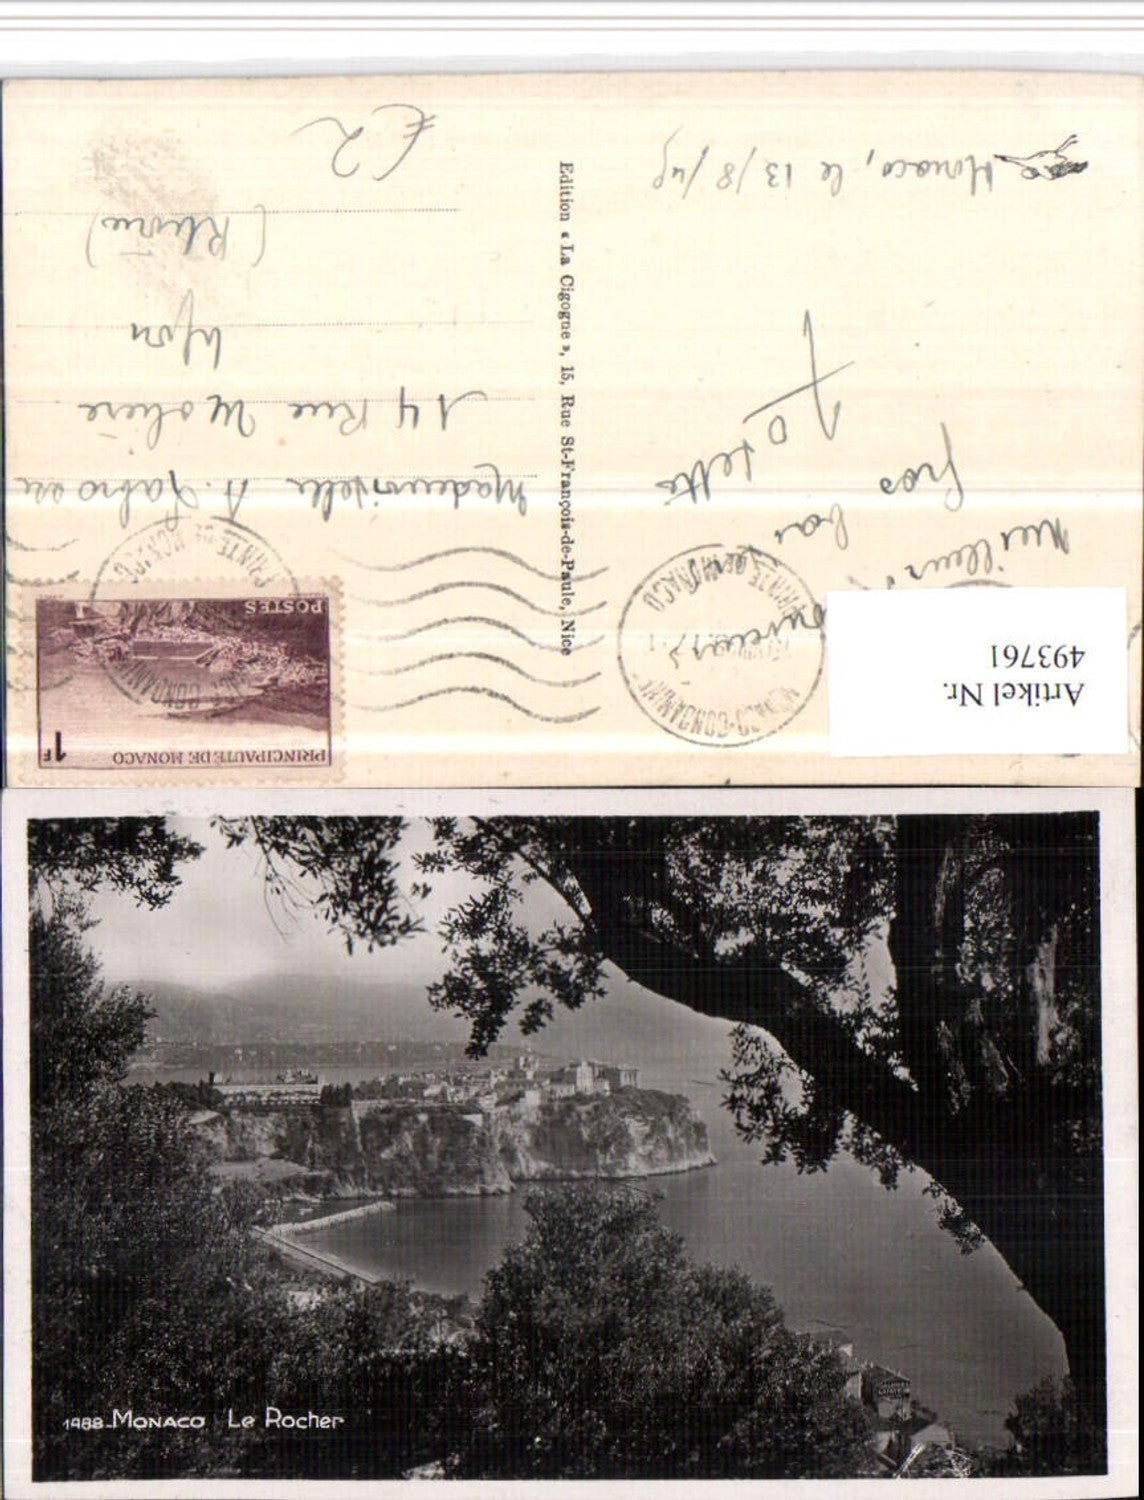 Monaco, le 13/8/48
Meilleurs
gros
Mademoiselle A.
14 Rue Molière
Lyon
(Rhône)
€2
Edition « La Cigogne », 15, Rue St-François-de-Paule, Nice
PRINCIPAUTÉ DE MONACO
1F
POSTES
MONACO-CONDAMINE
PRINCIPTE DE MONACO
Artikel Nr.
493761
1488 - MONACO Le Rocher